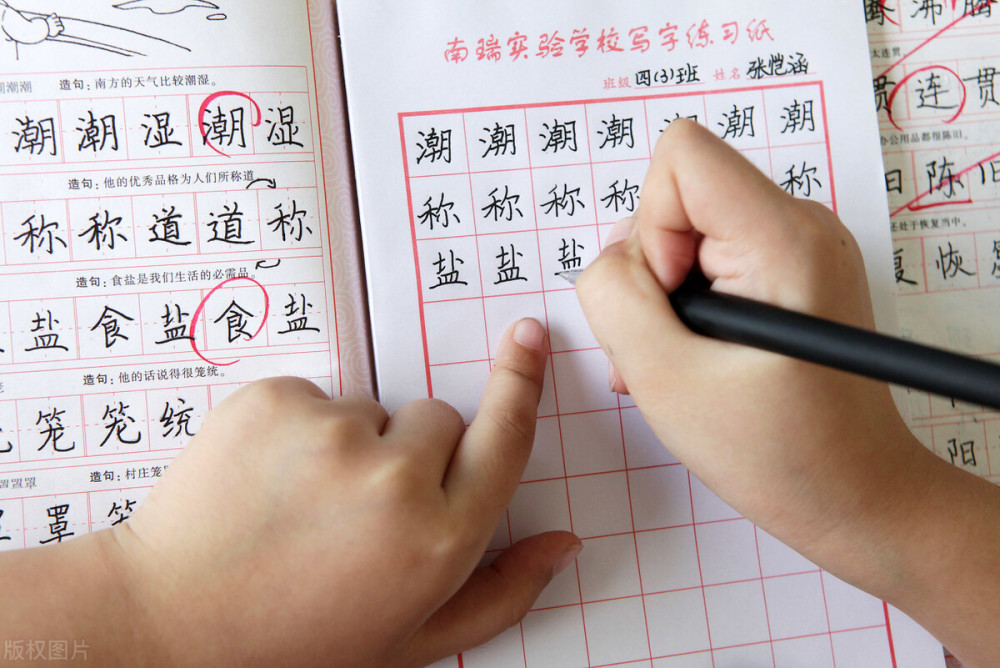 潮潮潮
造句：南方的天气比较潮湿。
潮潮湿潮湿
造句：他的优秀品格为人们所称道
称称道道称
造句：食盐是我们生活的必需品。
盐食盐食盐
造句：他的话说得很笼统。
笼笼统
罩罩罩
造句：村庄笼
罩笼
南瑞实验学校写字练习纸
班级 四(3)班 姓名 张恺涵
潮潮潮潮潮潮潮
称称称称称
盐盐盐
沸腾
太连贯
贯连贯
办公用品都很陈旧。
旧陈旧
还处于恢复当中。
复恢
阳
版权图片